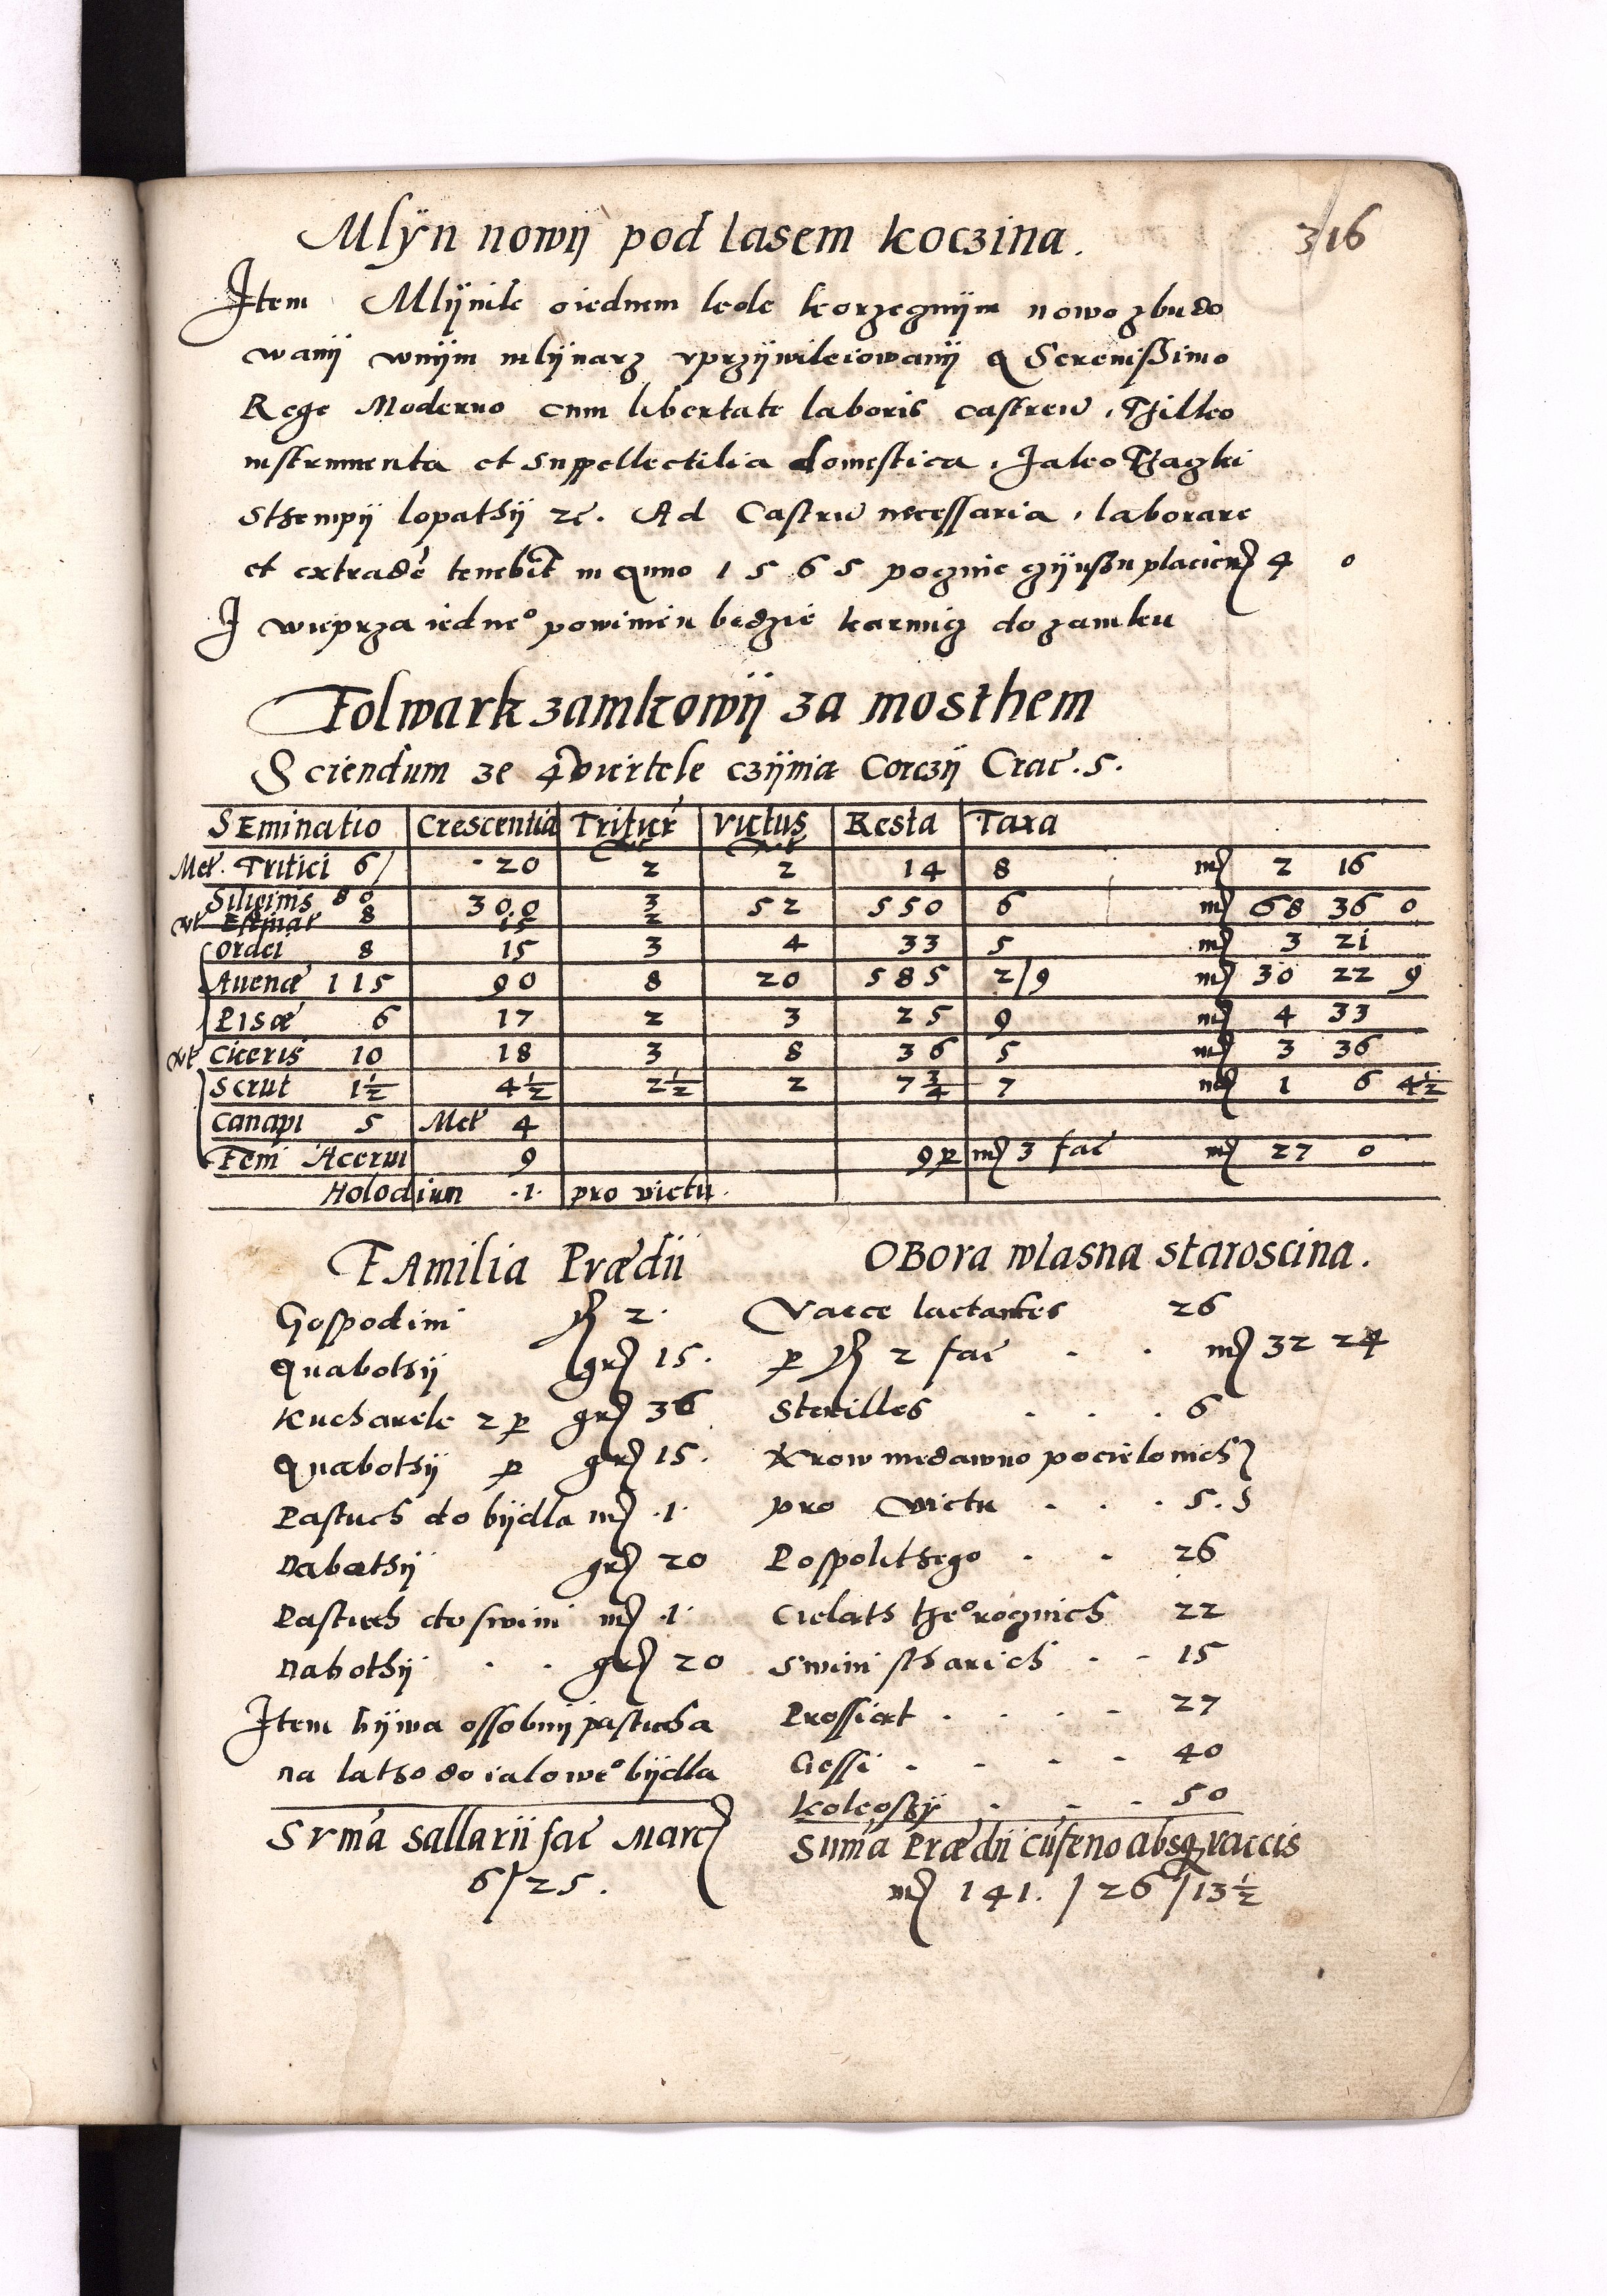 316
Mlÿn nowÿ pod lasem koczina.
Item Mlÿnik o iednem kole korzecznÿm nowo zbudo
wanÿ wnÿm mlÿnarz vprzÿwileiowanÿ a Serenissimo
Rege Moderno cum libertate laboris castren̄, Thilko
instrumenta et suppellectilia domestica, Jako Thaczki
Sthempÿ lopathÿ zc̄. Ad Castrū necessaria, laborare
et extradē tenebit̄ in anno 1565 pocznie czÿnszu placic mͬ 4 0
I wieprza iedneº powinien bedzie karmicz do zamku
Folwark zamkowÿ za mosthem
Sciendum ze 4 viertele czÿnia Corczÿ Crac̄. 5.
SEminatio Crescentia Triturē victus Resta Taxa
Met̄. Tritici 6/ 20 2 2 14 8 mͬ 2 16
Siliginis 80 300 3 52 550 6 mͬ 68 36 0
8 15 2
ordei 8 15 3 4 33 5 mͬ 3 21
Auenæ 115 90 8 20 585 2/9 mͬ 30 22 9
Pisæ 6 17 2 3 25 9 mͬ 4 33
Ciceris 10 18 3 8 36 5 mͬ 3 36
Scrut 1½ 4½ 2½ 2 7¾ 7 mͬ 1 6 4½
Canapi 5 Met̄ 4
Feni Acerui 9 9 p mͬ 3 fac̄ mͬ 27 0
Holodiun .1. pro victu.
FAmilia Prædii
Gospodini 2.
Quabothÿ grͬ 15.
Kucharke 2 p grͬ 36
Quabothÿ p grͬ 15.
Pastuch do bÿdla mͬ .1.
Nabothÿ grͬ 20
Pastuch do swini mͬ .1.
Nabothÿ . . grͬ 20
Item bÿwa ossobnÿ pastucha
na latho do ialoweº bÿdla
Svm̄a Sallarii fac̄ Marcͬ
6/25.
OBora wlasna staroscina.
Vacce lactantes 26
p 2 fac̄ . . mͬ 32 24
Sterilles . . . 6
Krow niedawno pocielonich
pro victu . . . 5.
Pospolithego . . 26
Cielath theºrocznich 22
Swini stharich . . 15
Prossiat . . . . 27
Giessi . . . . 40
Kokoszÿ . . . 50
Sum̄a Prædii cū feno absqz vaccis
mͬ 141. / 26 / 13½